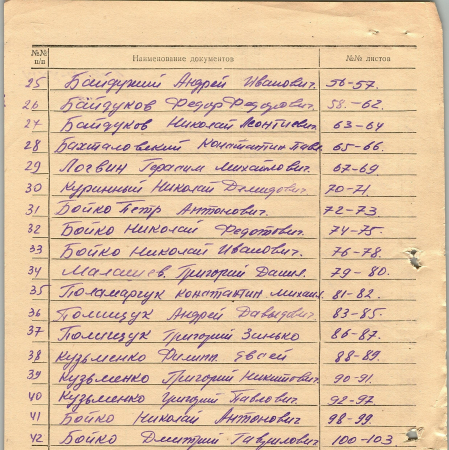 №№ п/п Наименование документов №№ листов
25 Байдужий Андрей Иванович. 56-57.
26 Байдуков Федор Федорович. 58.-62.
27 Байдуков Николай Леонтиевич 63-64
28 Бахталовский Константин Павл 65-66.
29 Логвин Герасим Михайлович. 67-69
30 Куринный Николай Демидович 70-71.
31 Бойко Петр Антонович. 72-73.
32 Бойко Николай Федотович. 74-75.
33 Бойко Николай Иванович. 76-78.
34 Григорий Данил. 79-80.
35 Поламарчук Константин Михаил. 81-82.
36 Полищук Андрей Давыдович. 83-85.
37 Полищук Григорий Зинько 86-87.
38 Кузьменко Филип. Евсей 88-89.
39 Кузьменко Григорий Никитович. 90-91.
40 Кузьменко Григорий Павлович. 92-97
41 Бойко Николай Антонович 98-99.
42 Бойко Дмитрий Гаврилович 100-103.